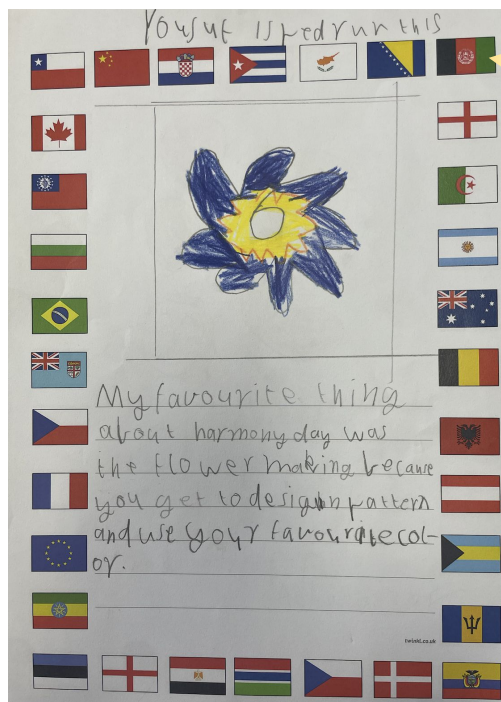 this
My favourite thing
about harmony day was
the flower making because
you get to design pattern
and use your favourite col-
or.
twinkl.co.uk